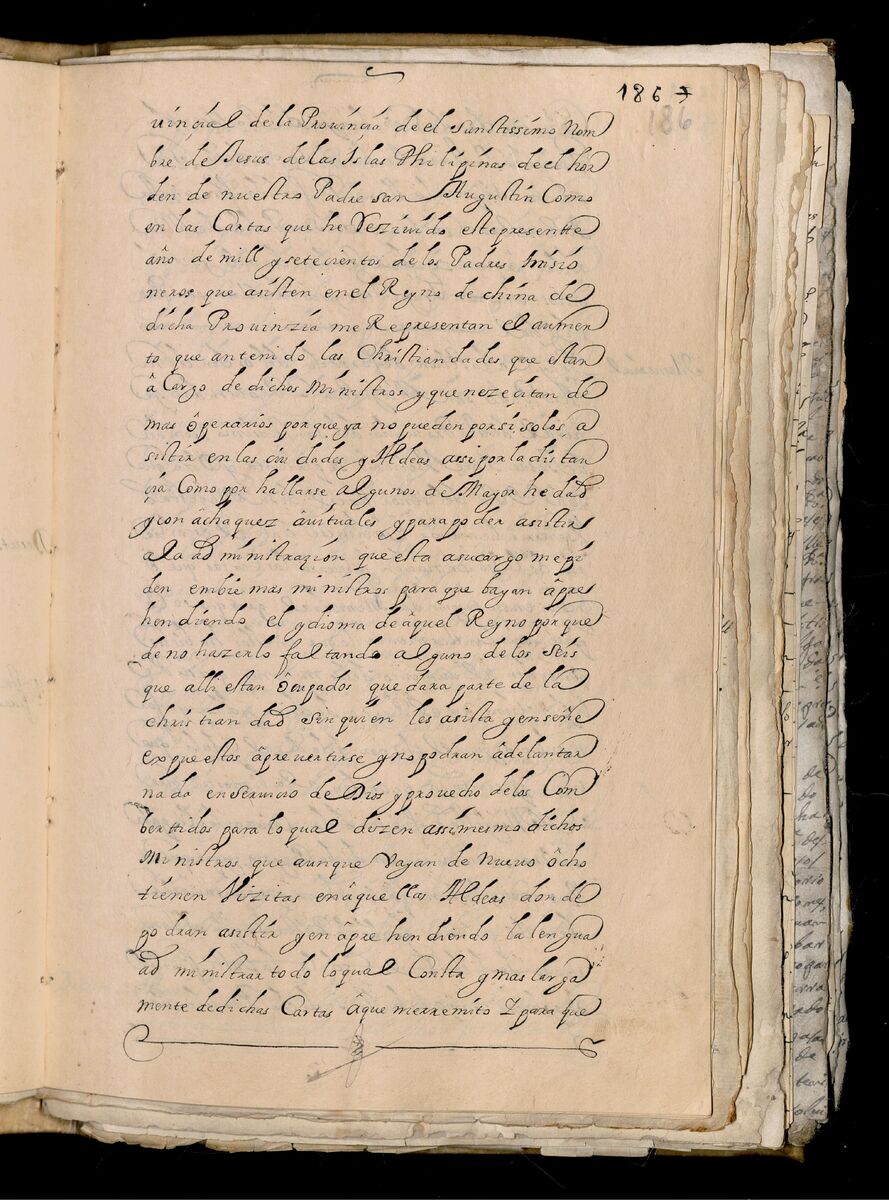 186 7
186
uinçial de la Prouinçia de el sanctissimo Nom
bre de Jesus de las Islas Philipinas de el hor
den de nuestro Padre san Augustin Como
en las Cartas que he Reziuido este presentte
año de mill y setecientos de los Padres misio
neros que asisten en el Reyno de china de
dicha Prouinzia me Representan el aumen
to que an tenido las Christiandades que estan
â Cargo de dichos Ministros y que nezeçitan de
mas ôperarios por que ya no pueden por si solos a
sistir en las ciudades y Aldeas assi por la distan
çia Como por hallarse algunos de Mayor hedad
y con âchaquez âuituales y para poder asistir
a la administrazion que esta a su cargo me pi
den embie mas ministros para que bayan âpre
hendiendo el ydioma de âquel Reyno por que
de no hazerlo faltando alguno de los seis
que alli estan ôcupados quedara parte de la
christiandad sin quien les asista y enseñe
expuestos âpreuertirse y no podran âdelantar
nada en seruicio de Dios y prouecho de los Com
berttidos para lo qual dizen assimesmo dichos
Ministros que aunque Vayan de nueuo ôcho
tienen Vizitas en âquellas Aldeas donde
podran asistir y en âprehendiendo la lengua
administrar todo lo qual Consta y mas larga
mente de dichas Cartas âque me rremito Z para que